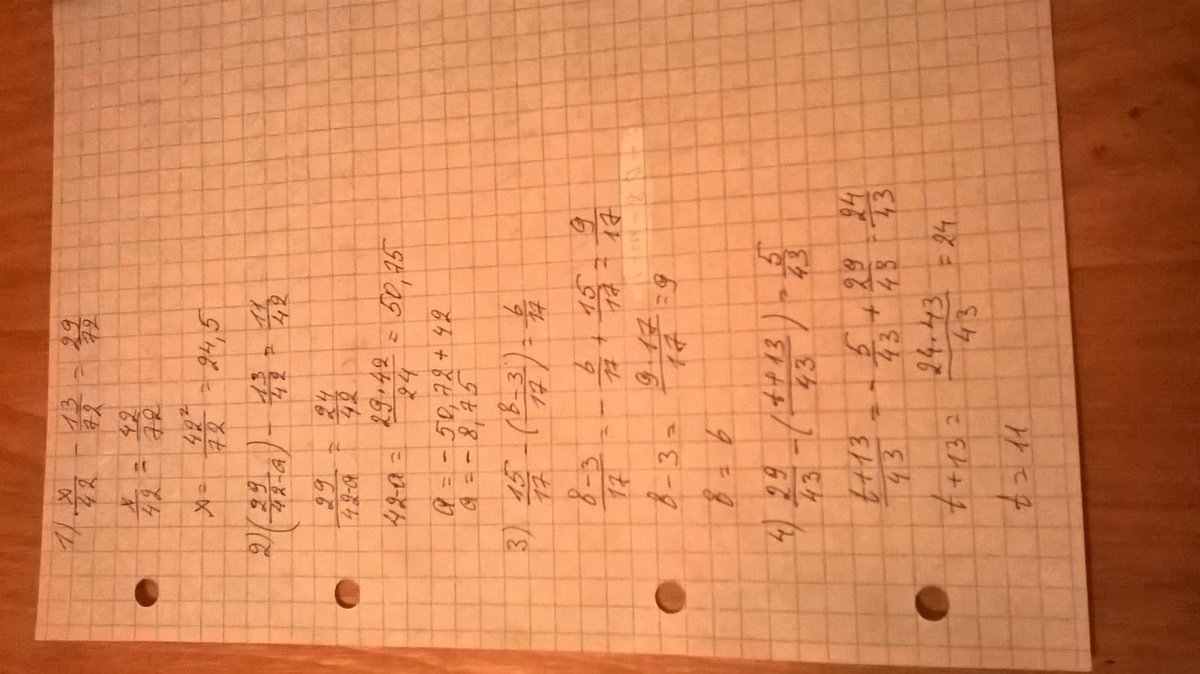 1) x/42 - 13/72 = 29/72
x/42 = 42/72
x = 42²/72 = 24,5
2) (29/(42-a)) - 13/42 = 11/42
29/(42-a) = 24/42
42-a = 29·42/24 = 50,75
a = -50,72 + 42
a = -8,75
3) 15/17 - ((в-3)/17) = 6/17
(в-3)/17 = -6/17 + 15/17 = 9/17
в-3 = 9·17/17 = 9
в = 6
4) 29/43 - ((t+13)/43) = 5/43
(t+13)/43 = -5/43 + 29/43 = 24/43
t+13 = 24·43/43 = 24
t = 11